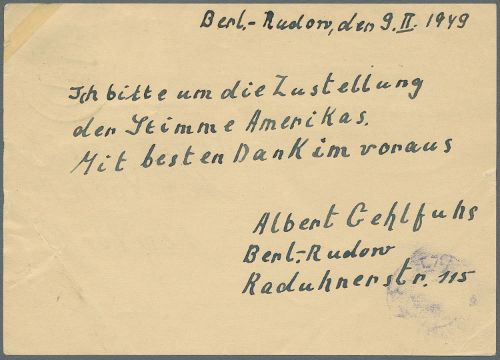 Berl.-Rudow, den 9.II. 1949
Ich bitte um die Zustellung
der Stimme Amerikas.
Mit besten Dank im voraus
Albert Gehlfuhs
Berl.-Rudow
Raduhnerstr. 115